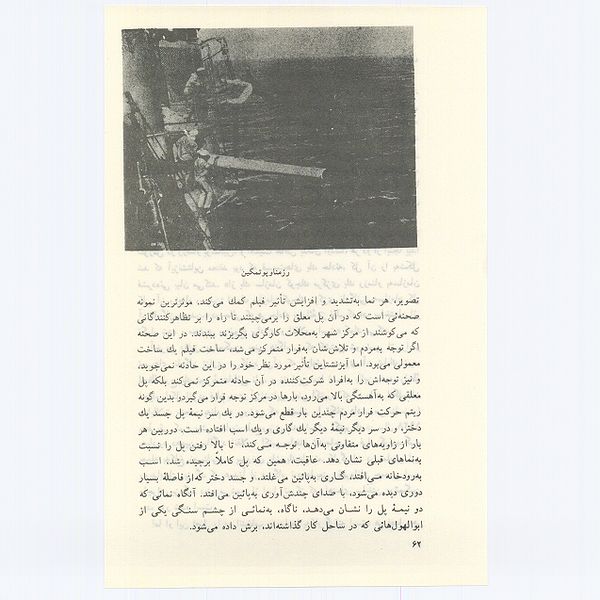 رزمناو پوتمکین
تصویر، هر نما به‌تشدید و افزایش تأثیر فیلم کمك می‌کند. موثرترین نمونه
صحنه‌ئی است که در آن پل معلق را برمی‌چینند تا راه را بر تظاهرکنندگانی
که می‌کوشند از مرکز شهر به‌محلات کارگری بگریزند ببندند. در این صحنه
اگر توجه به‌مردم و تلاش‌شان به‌فرار متمرکز می‌شد، ساخت فیلم یك ساخت
معمولی می‌بود. اما آیزنشتاین تأثیر مورد نظر خود را در این حادثه نمی‌جوید،
و نیز توجه‌اش را به‌افراد شرکت‌کننده در آن حادثه متمرکز نمی‌کند بلکه پل
معلقی که به‌آهستگی بالا می‌رود، بارها در مرکز توجه قرار می‌گیردو بدین گونه
ریتم حرکت فرار مردم چندین بار قطع می‌شود. در یك سر نیمهٔ پل جسد یك
دختر، و در سر دیگر نیمهٔ دیگر یك گاری و یك اسب افتاده است. دوربین هر
بار از زاویه‌های متفاوتی به‌آن‌ها توجـه مـی‌کند، تا بالا رفتن پل را نسبت
به‌نماهای قبلی نشان دهد. عاقبت، همین که پل کاملاً برچیده شد، اسـب
به‌رودخانه مـی‌افتد، گـاری به‌پائین می‌غلتد، و جسد دختر که‌از فاصلهٔ بسیار
دوری دیده می‌شود، با صدای چندش‌آوری به‌پائین می‌افتد. آنگاه نمائی که
دو نیمـهٔ پل را نشـان می‌دهـد، ناگاه، به‌نمـائـی از چشـم سنـگـی یکـی از
ابوالهول‌هائی که در ساحل کار گذاشته‌اند، برش داده می‌شود.
۶۲